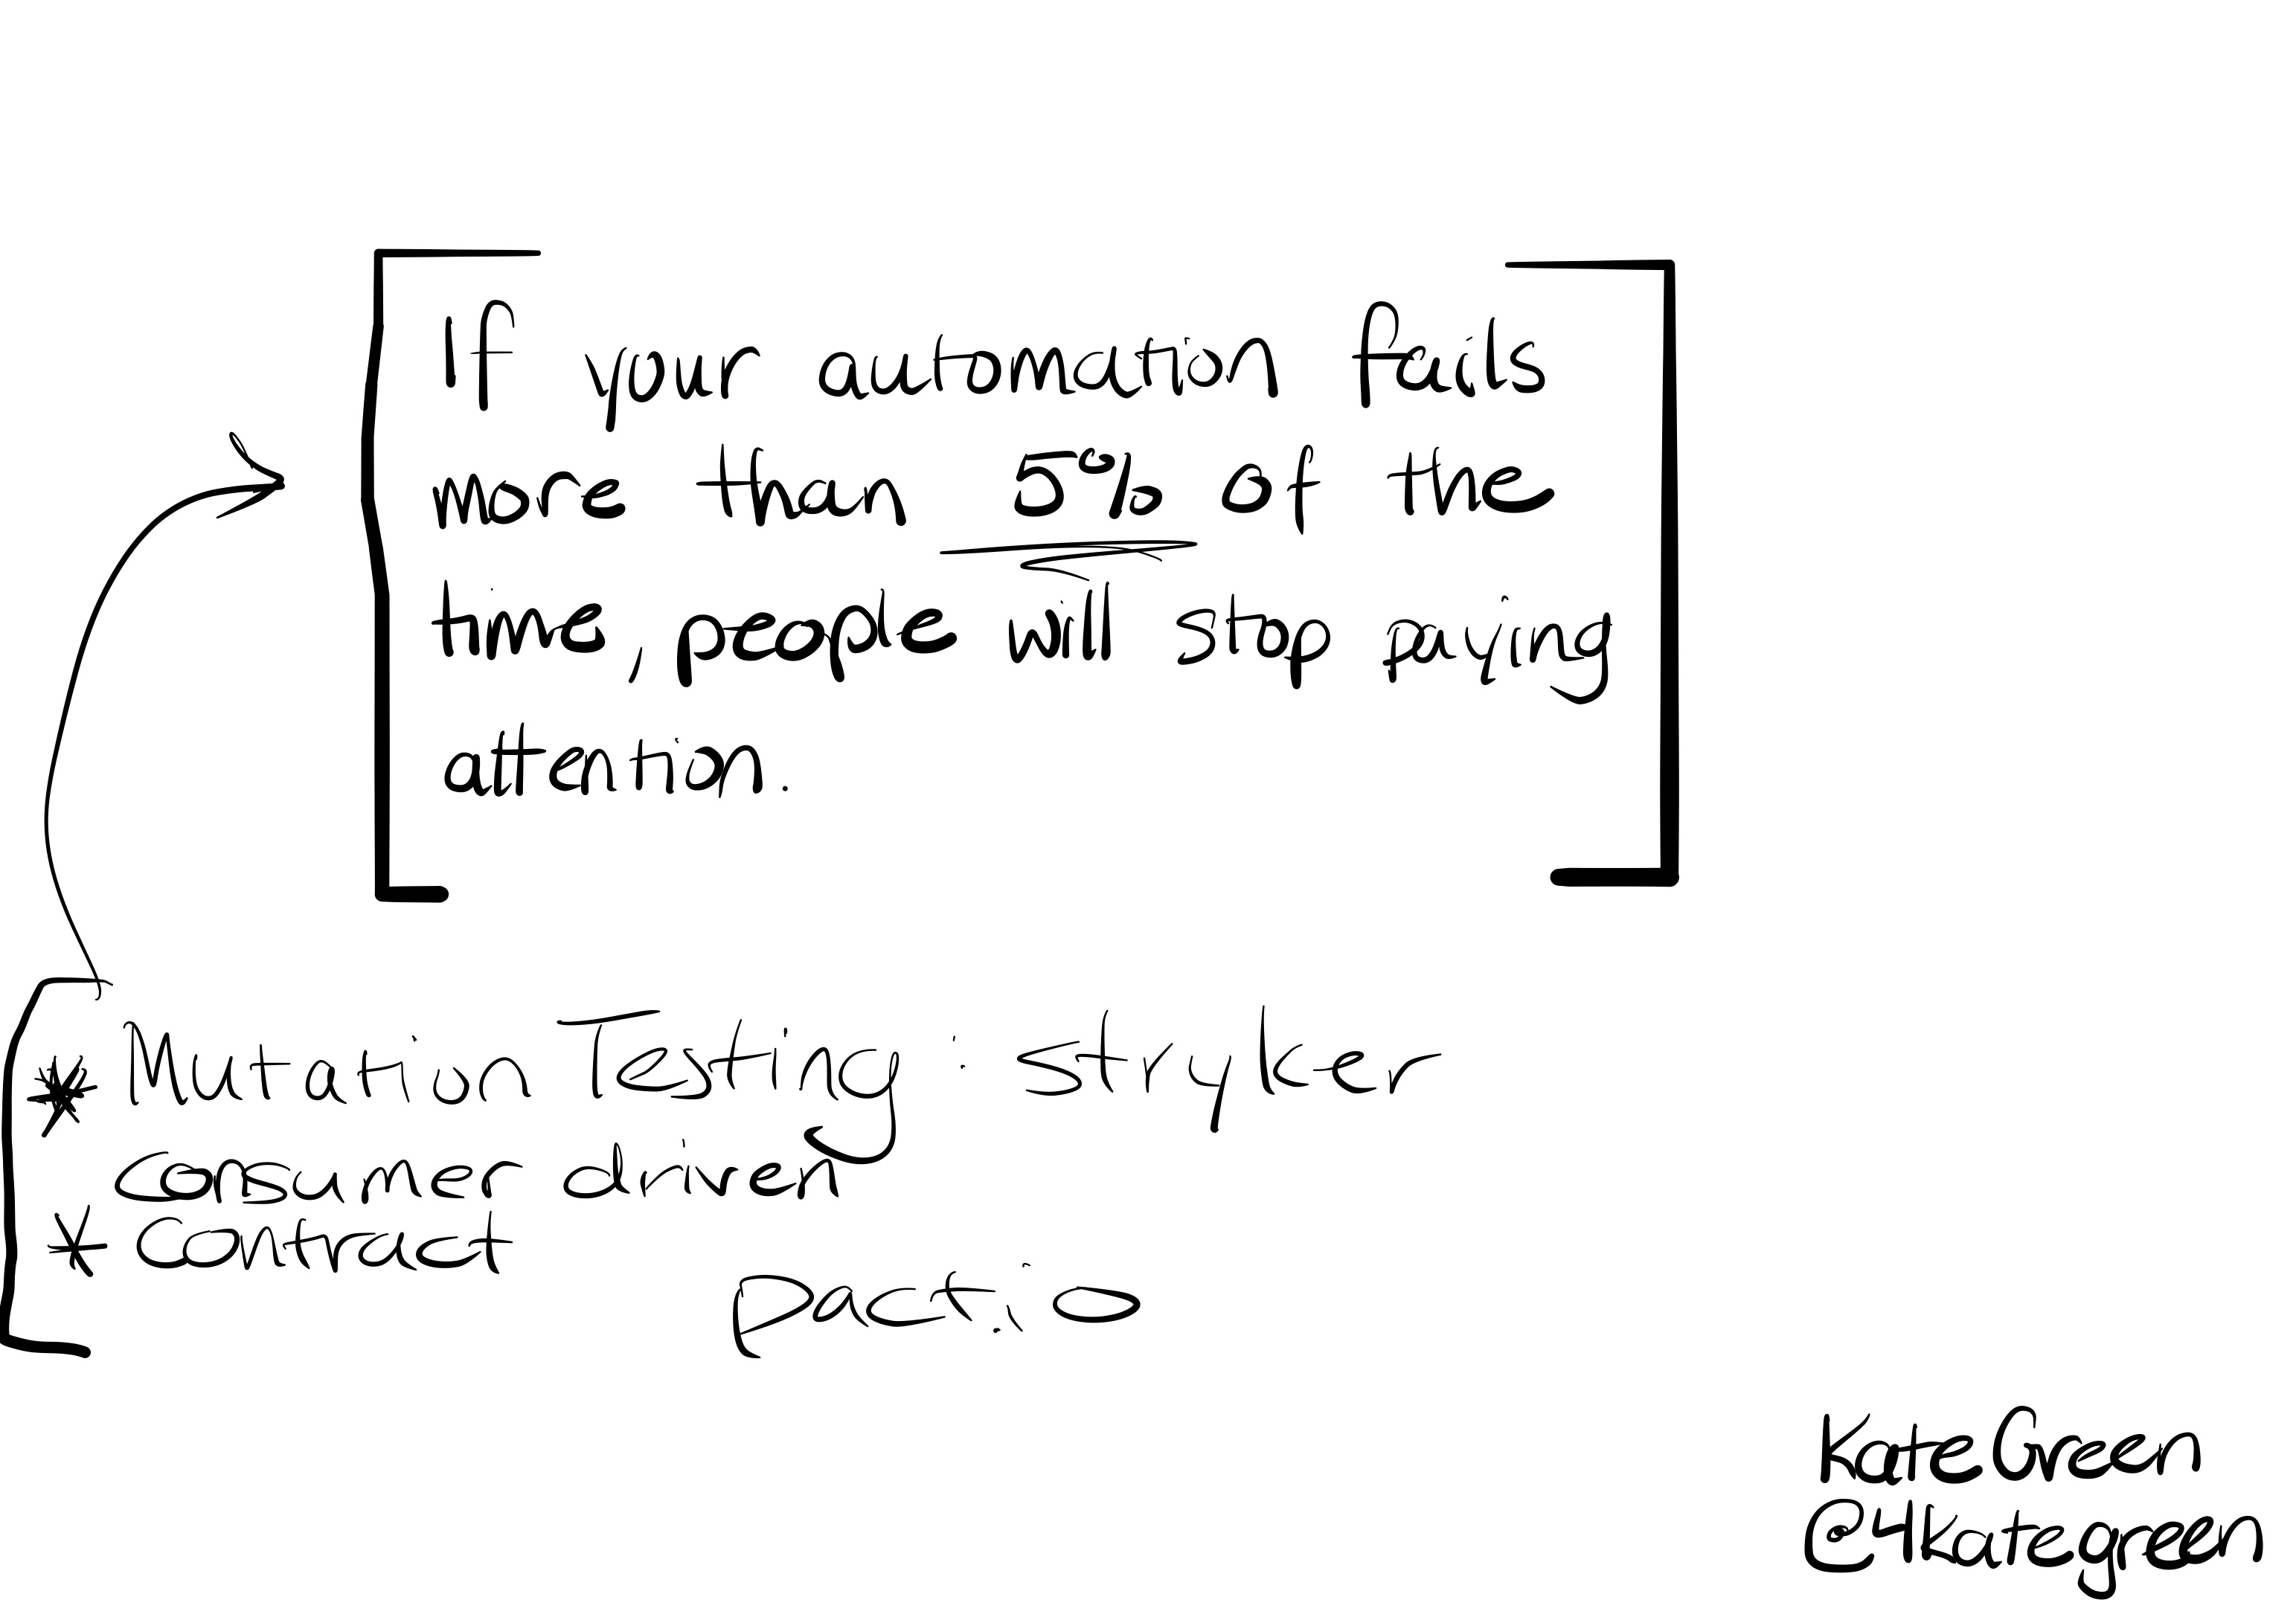 If your automation fails
more than 5% of the
time, people will stop paying
attention.
* Mutation Testing: stryker
consumer driven
* contract
pact.io
Kate Green
@4Kategreen